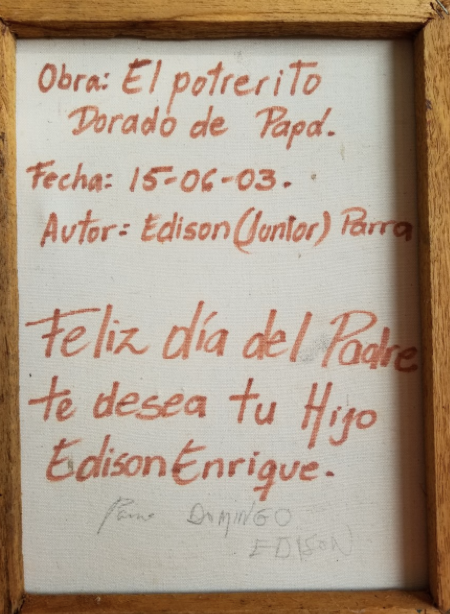 Obra: El potrerito
Dorado de Papá.
Fecha: 15-06-03.
Autor: Edison (Junior) Parra
Feliz día del Padre
te desea tu Hijo
Edison Enrique.
DOMINGO
EDISON